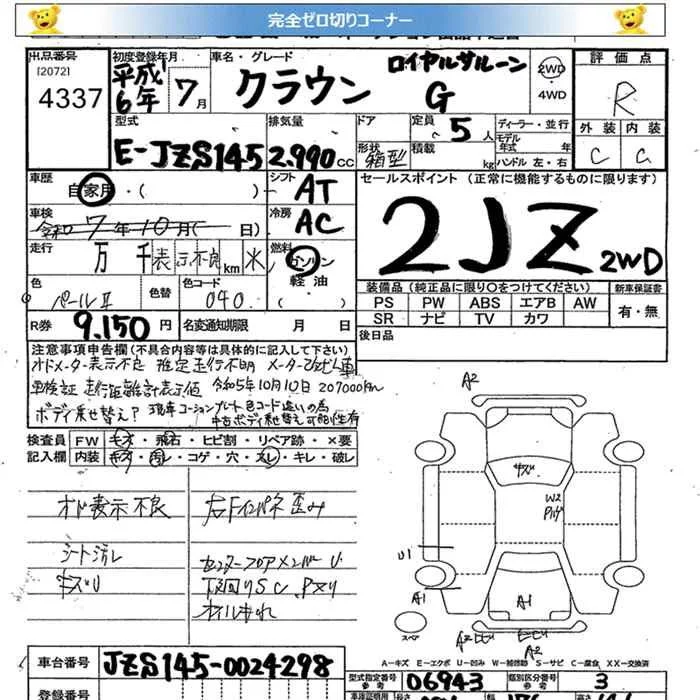 完全ゼロ切りコーナー
出品番号
[2072]
4337
初度登録年月
平成6年 7月
車名・グレード
クラウン ロイヤルサルーン G
2WD
・
4WD
評価点
R
外装 内装
C C
型式
E-JZS145
排気量
2.990 CC
ドア
定員 5人
形状 箱型
積載 kg
ディーラー・並行
モデル年式 年
ハンドル 左・右
車歴
自家用・( )
シフト
AT
セールスポイント (正常に機能するものに限ります)
2JZ 2WD
車検
令和7年10月( 日)
冷房
AC
走行
万 千 表示不良 km
燃料
ガソリン
軽油
色
パールⅡ
色替
色コード
040
装備品 (純正品に限り〇をつけてください)
PS PW ABS エアB AW
SR ナビ TV カワ
新車保証書
有・無
R券 9.150円
名変通知期限 月 日
後日品
注意事項申告欄(不具合内容等は具体的に記入して下さい)
オドメーター表示不良 推定走行不明
車検証 走行距離計表示値 令和5年10月10日 207000km
ボディ乗せ替え? コーションプレート色コード違いの為
中古ボディ乗せ替え可能性有
検査員 FW キズ・飛石・ヒビ割・リペア跡・×要
記入欄 内装 キズ・汚レ・コゲ・穴・スレ・キレ・破レ
オド表示不良
シート汚レ
キズリ
右Fインパネ歪み
センターフロアメンバーU
下回りSC、Pスリ
オイルもれ
A2
キズ
W2
Pハゲ
U1
A1
A1
スペア
A2
A2
A-キズ E-エクボ U-凹み W-補修跡 S-サビ C-腐食 XX-交換済
車台番号 JZS145-0024298
登録番号
型式指定番号 06943
類別区分番号 3